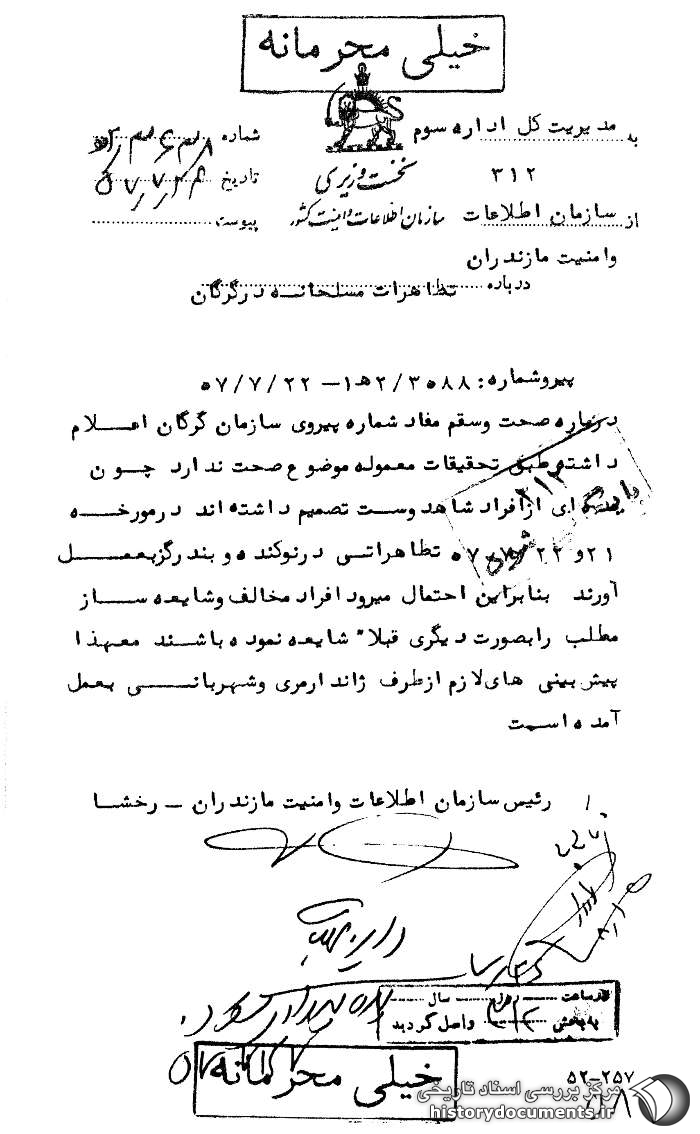 خیلی محرمانه
به مدیریت کل اداره سوم
۳۱۲
از سازمان اطلاعات
وامنیت مازندران
نخست وزیری
سازمان اطلاعات و امنیت کشور
شماره
تاریخ
پیوست
درباره تظاهرات مسلحانه در گرگان
پیرو شماره: ۲/۳۰۸۸ ه‍۱ – ۵۷/۷/۲۲
درباره صحت وسقم مفاد شماره پیروی سازمان گرگان اعلام
داشته طبق تحقیقات معموله موضوع صحت ندارد چون
ای ازافراد شاهدوست تصمیم داشته اند درمورخه
۲۱و۲۲ تظاهراتی درنوکنده و بندرگزبعمل
آورند بنابراین احتمال میرود افراد مخالف وشایعه ساز
مطلب رابصورت دیگری قبلا" شایعه نموده باشند معهذا
پیش بینی های لازم ازطرف ژاندارمری وشهربانی بعمل
آمده است
رئیس سازمان اطلاعات وامنیت مازندران – رخشا
در ساعت سال
به بخش ۳۱۲ واصل گردید
خیلی محرمانه
۵۲–۲۵۷
مرکز بررسی اسناد تاریخی
historydocuments.ir